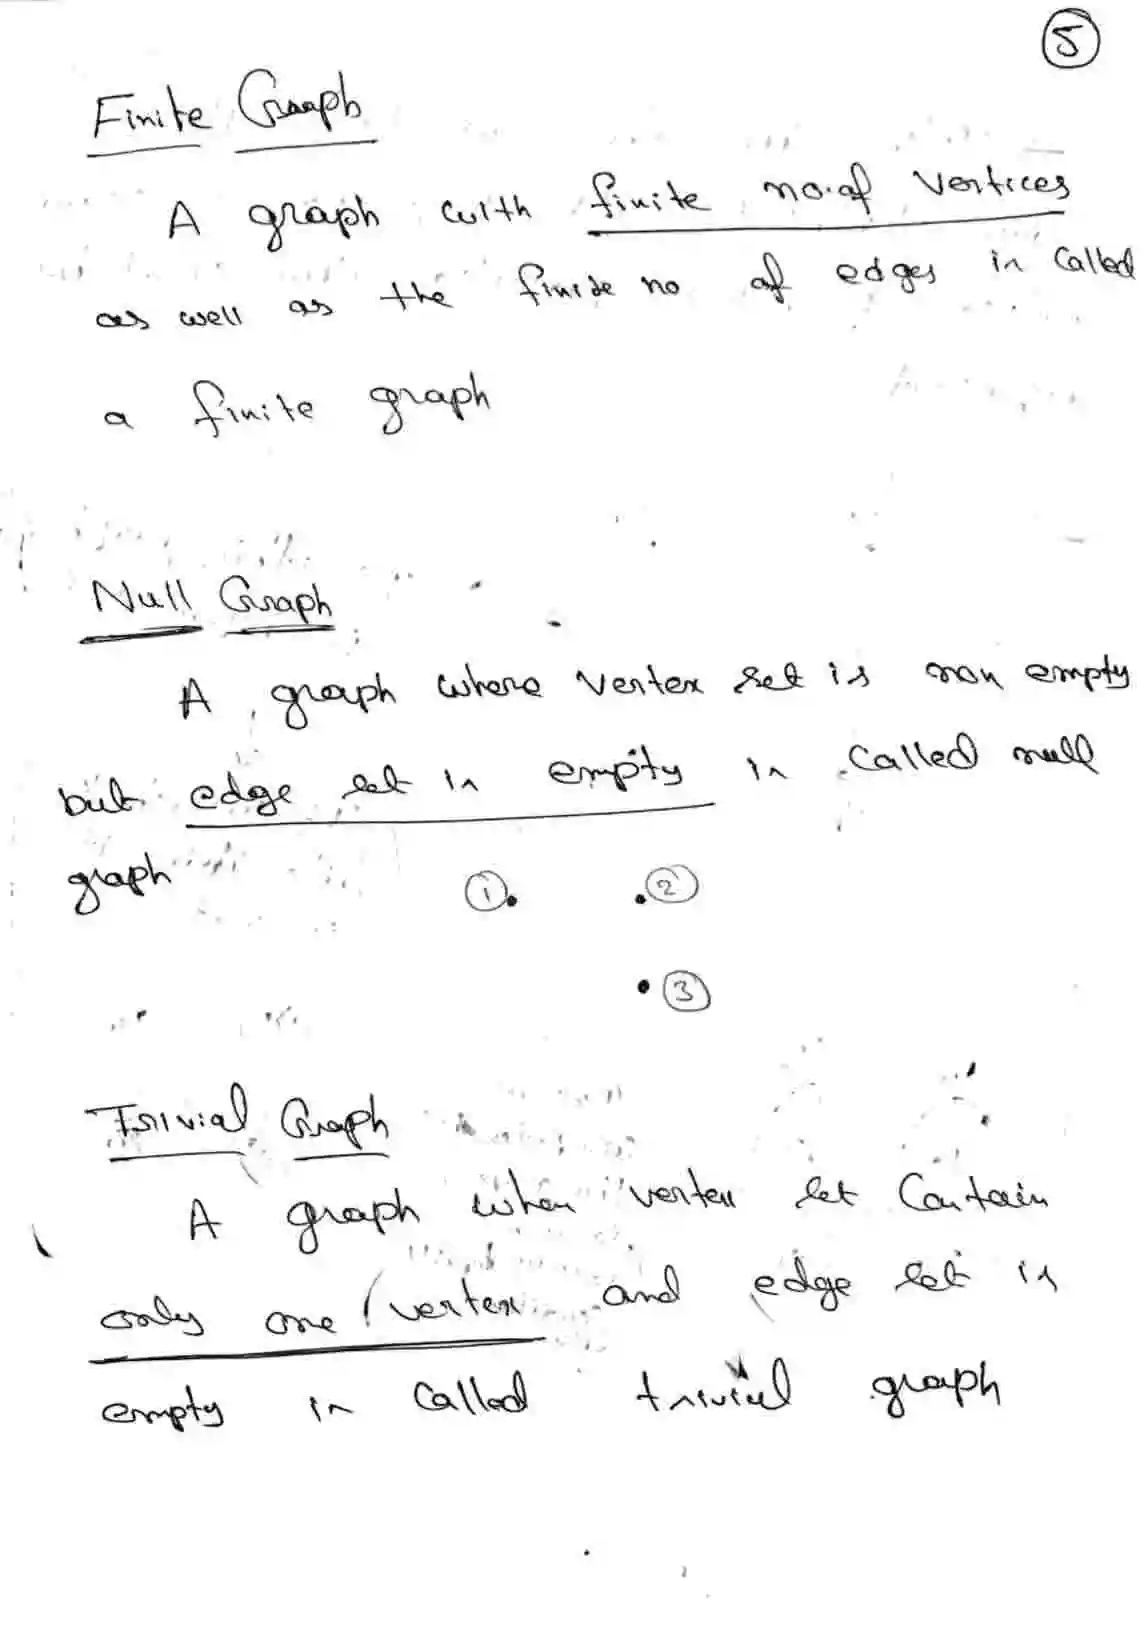 5
Finite Graph
A graph with finite no.of vertices
as well as the finite no of edges is called
a finite graph
Null Graph
A graph whose vertex set is non empty
but edge set is empty is called null
graph
1 2
3
Trivial Graph
A graph when vertex set Contain
only one vertex and edge set is
empty is called trivial graph